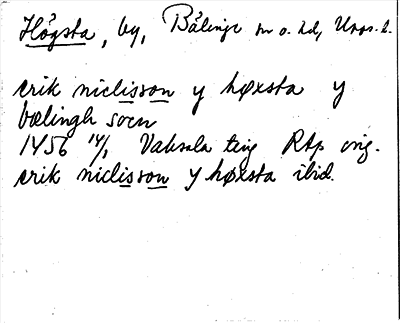 Högsta, by, Bälinge sn o. hd, Upps. l.
erik niclisson y høxsta y
bælingh socn
1456 14/1 Vaksala ting RAp orig.
erik niclisson y høxsta ibid.